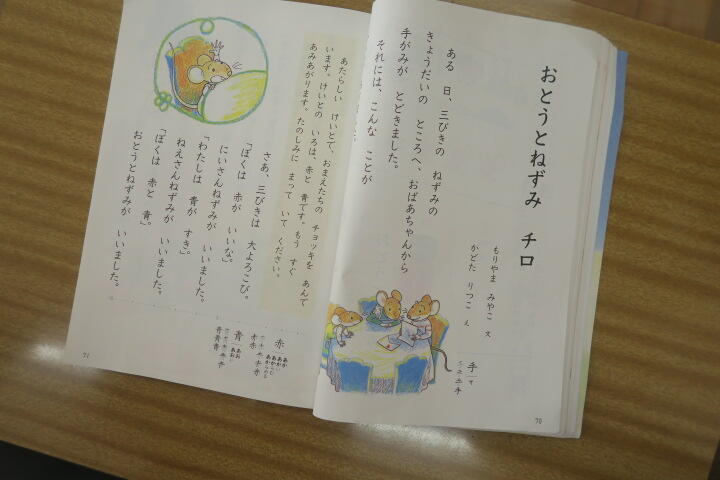 おとうとねずみ　チロ
もりやま　みやこ　文
かどた　りつこ　え
ある　日、三びきの　ねずみの
きょうだいの　ところへ、おばあちゃんから
手がみが　とどきました。
それには、こんな　ことが
手　て
70
あたらしい　けいとで、おまえたちの　チョッキを　あんで
います。けいとの　いろは、赤と　青です。もう　すぐ
あみあがります。たのしみに　まって　いて　ください。
さあ、三びきは　大よろこび。
「ぼくは　赤が　いいな。」
にいさんねずみが　いいました。
「わたしは　青が　すき。」
ねえさんねずみが　いいました。
「ぼくは　赤と　青。」
おとうとねずみが　いいました。
赤　あか　あかい　あからむ　あからめる
青　あお　あおい
71